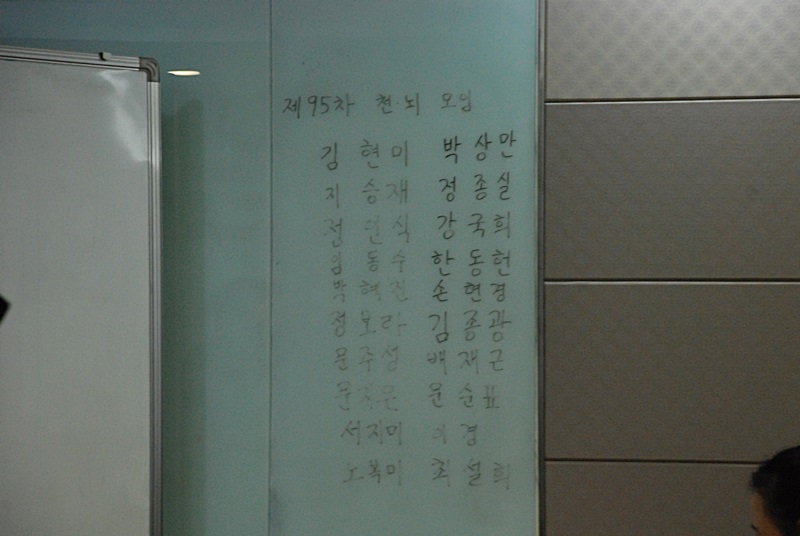 제95차 천뇌 모임
김현미 박상만
지승재 정종실
전인식 강국희
임동수 한동헌
박혜진 손현경
정보라 김종광
문주성 배재근
문 윤순표
서지미 이경
노복미 최설희